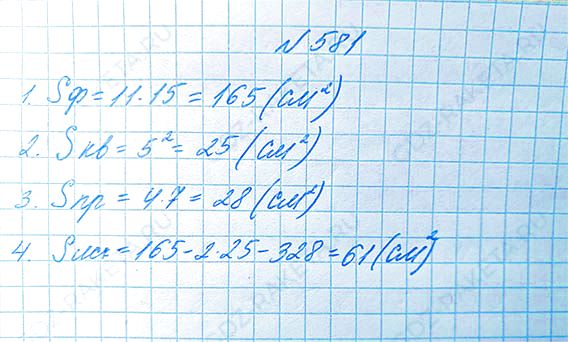 № 581
1. Sф = 11·15 = 165 (см²)
2. Sкв = 5² = 25 (см²)
3. Sпр = 4·7 = 28 (см²)
4. Sиск = 165 - 2·25 - 328 = 61 (см²)
GDZ-RAKETA.RU